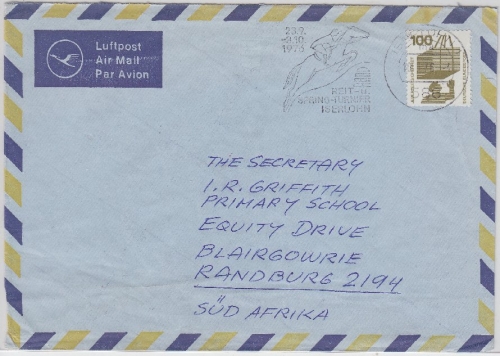 Luftpost
Air Mail
Par Avion
REIT- u.
SPRING-TURNIER
ISERLOHN
100
THE SECRETARY
I.R. GRIFFITH
PRIMARY SCHOOL
EQUITY DRIVE
BLAIRGOWRIE
RANDBURG 2194
SÜD AFRIKA